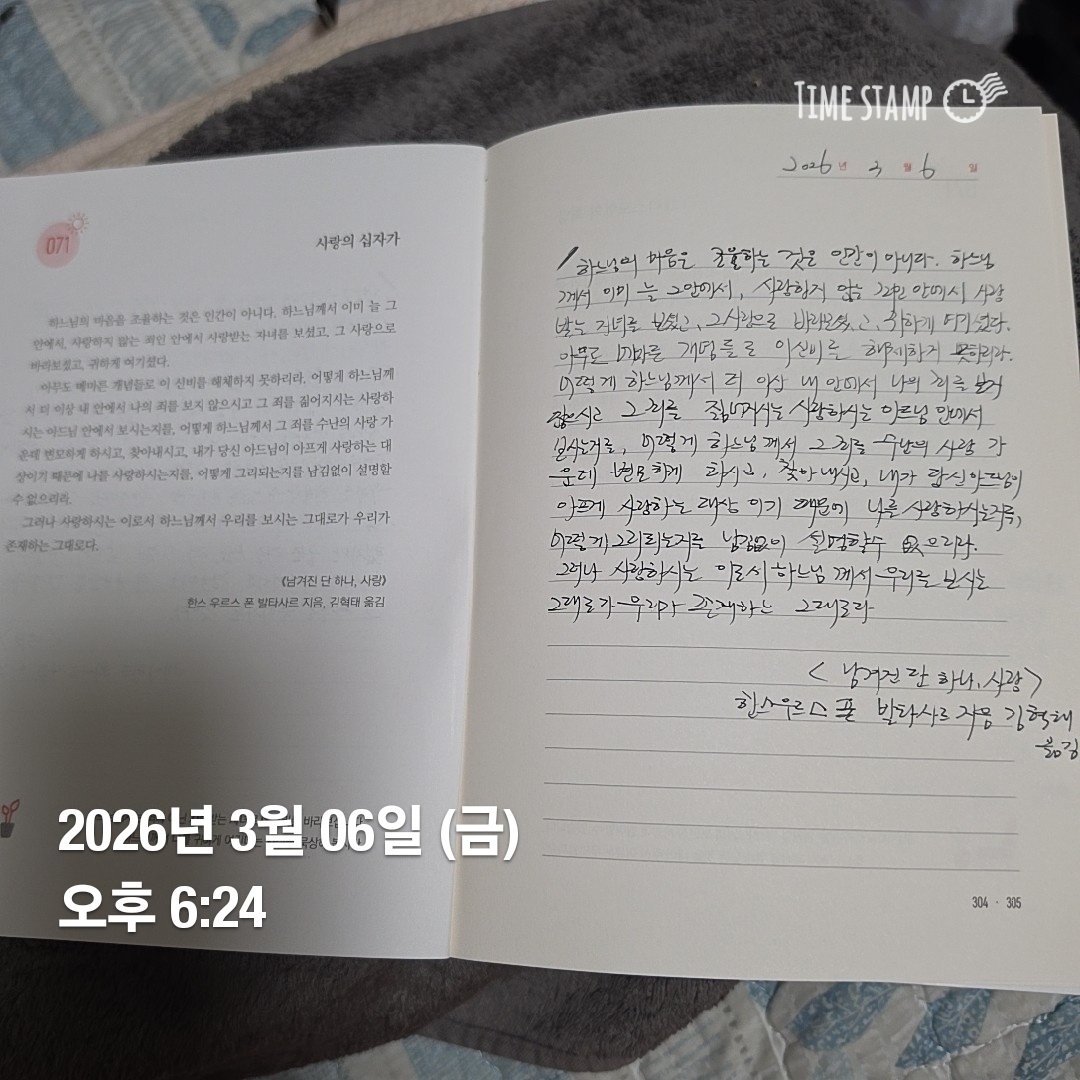 TIME STAMP
071
사랑의 십자가
하느님의 마음을 조율하는 것은 인간이 아니다. 하느님께서 이미 늘 그
안에서, 사랑하지 않는 죄인 안에서 사랑받는 자녀를 보셨고, 그 사랑으로
바라보셨고, 귀하게 여기셨다.
아무도 메마른 개념들로 이 신비를 해체하지 못하리라. 어떻게 하느님께
서 더 이상 내 안에서 나의 죄를 보지 않으시고 그 죄를 짊어지시는 사랑하
시는 아드님 안에서 보시는지를, 어떻게 하느님께서 그 죄를 수난의 사랑 가
운데 변모하게 하시고, 찾아내시고, 내가 당신 아드님이 아프게 사랑하는 대
상이기 때문에 나를 사랑하시는지를, 어떻게 그리되는지를 남김없이 설명할
수 없으리라.
그러나 사랑하시는 이로서 하느님께서 우리를 보시는 그대로가 우리가
존재하는 그대로다.
《남겨진 단 하나, 사랑》
한스 우르스 폰 발타사르 지음, 김혁태 옮김
2026년 3월 6일
하느님의 마음은 조율하는 것은 인간이 아니다. 하느님
께서 이미 늘 그안에서, 사랑하지 않는 죄인 안에서 사랑
받는 자녀를 보셨고, 그사랑으로 바라보셨고, 귀하게 여기셨다.
아무도 메마른 개념들로 이신비를 해체하지 못하리라.
어떻게 하느님께서 더 이상 내 안에서 나의 죄를 보지
않으시고 그 죄를 짊어지시는 사랑하시는 아드님 안에서
보시는지를, 어떻게 하느님께서 그 죄를 수난의 사랑 가
운데 변모하게 하시고, 찾아내시고, 내가 당신아드님이
아프게 사랑하는 대상 이기 때문에 나를 사랑하시는지를,
어떻게 그리되는지를 남김없이 설명할수 없으리라.
그러나 사랑하시는 이로서 하느님께서 우리를 보시는
그대로가 우리가 존재하는 그대로라
<남겨진 단 하나, 사랑>
한스우르스 폰 발타사르 지음 김혁태
옮김
304 · 305
2026년 3월 06일 (금)
오후 6:24